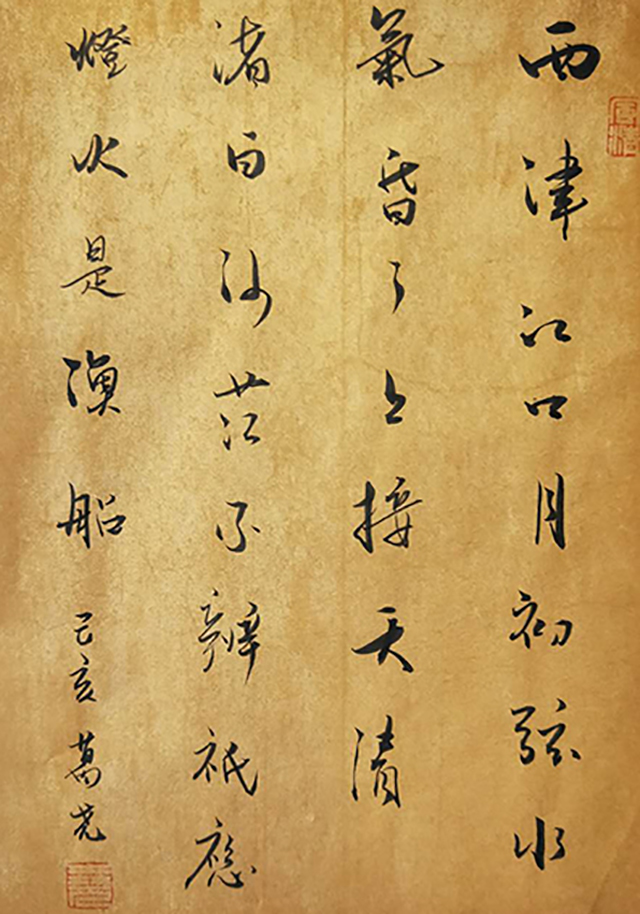 西津江口月初弦水
氣昏了上接天清
渚白沙茫不辨祇應
燈火是漁船己亥葛堯